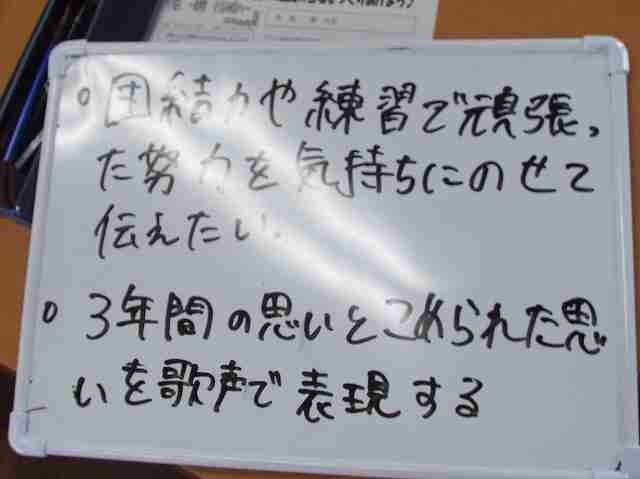 ○団結力や練習で頑張っ
た努力を気持ちにのせて
伝えたい。
○3年間の思いとこめられた思
いを歌声で表現する